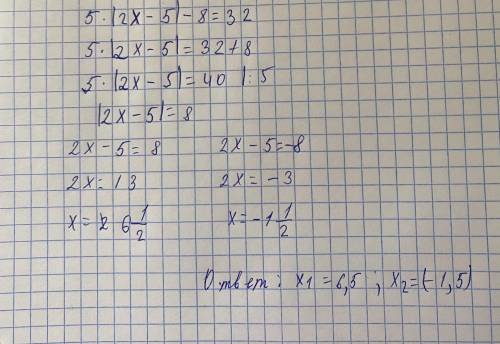 5·|2x-5|-8=32
5·|2x-5|=32+8
5·|2x-5|=40 |:5
|2x-5|=8
2x-5=8
2x=13
x=6 1/2
2x-5=-8
2x=-3
x=-1 1/2
Ответ: x₁=6,5 ; x₂=(-1,5)